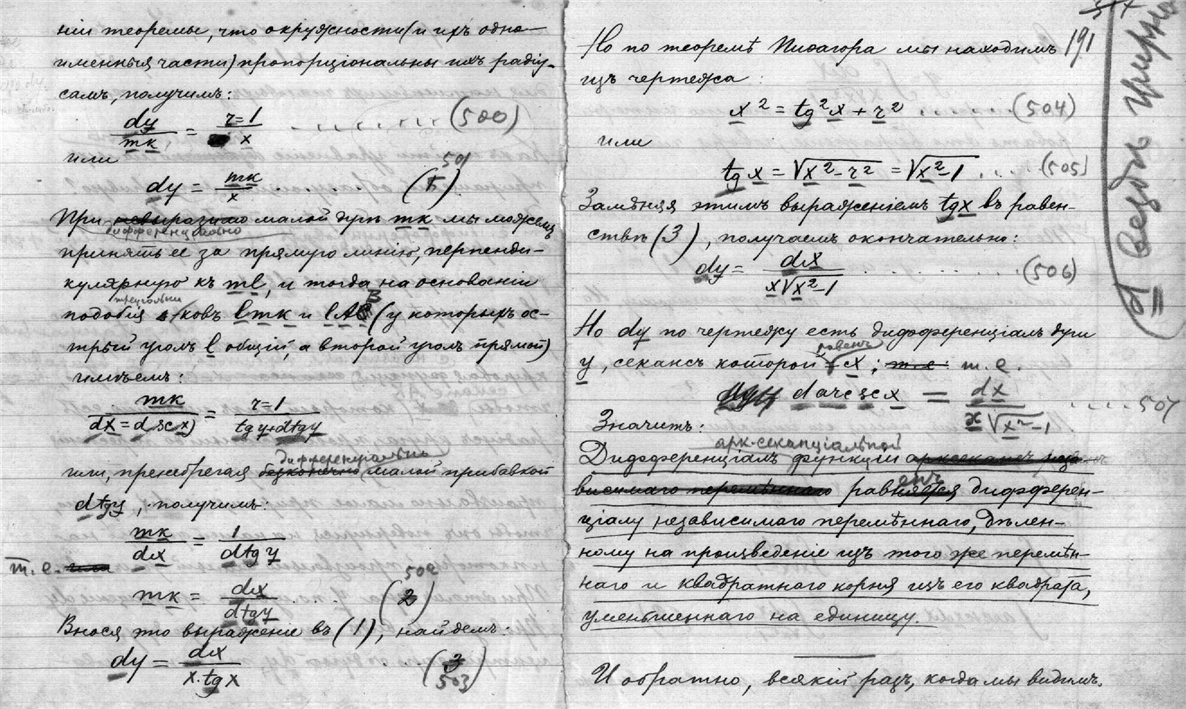 ніи теоремы, что окружности (и ихъ одно-
именныя части) пропорціональны ихъ радіу-
самъ, получимъ:
dy/mk = r=1/x ........ (500)
или 501
dy = mk/x ........ (1)
При невыразимо малой дугѣ mk мы можемъ
дифференціально
принять ее за прямую линію, перпенди-
кулярную къ ml, и тогда на основаніи
треугольни
подобія ковъ lmk и lAB (у которыхъ ос-
трый уголъ l общій, а второй уголъ прямой)
имѣемъ:
mk/(dx = d(sc x)) = r=1/(tgy+dtgy)
дифференціально
или, пренебрегая безконечно малой прибавкой
dtgy, получимъ:
mk/dx = 1/dtgy
т. е. или
mk = dx/dtgy .... (2) 502
Внося это выраженіе въ (1), найдемъ:
dy = dx/x.tgx (3) 503
191
Но по теоремѣ Пиѳагора мы находимъ
изъ чертежа:
x² = tg²x + r² ........ (504)
или
tg x = √x²-r² = √x²-1 .... (505)
Замѣняя этимъ выраженіемъ tgx въ равен-
ствѣ (3), получаемъ окончательно:
dy = dx/x√x²-1 ........ (506)
Но dy по чертежу есть дифференціалъ дуги
равенъ
y, секансъ которой x; mk т. е.
dy d arc sc x = dx/x√x²-1 .... 507
Значитъ:
арк-секанціальной
Дифференціалъ функціи арксекансъ неза-
висимаго перемѣннаго равняется дифферен-
енъ
ціалу независимаго перемѣннаго, дѣлен-
ному на произведеніе изъ того же перемѣн-
наго и квадратнаго корня изъ его квадрата,
уменьшеннаго на единицу.
И обратно, всякій разъ, когда мы видимъ
d вездѣ